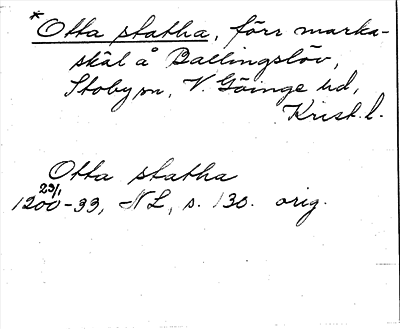 *Otta statha, förr marka-
skäl å Ballingslöv,
Stoby sn, V. Göinge hd,
Krist. l.
Otta statha
23/1
1200-99, NL, s. 130. orig.